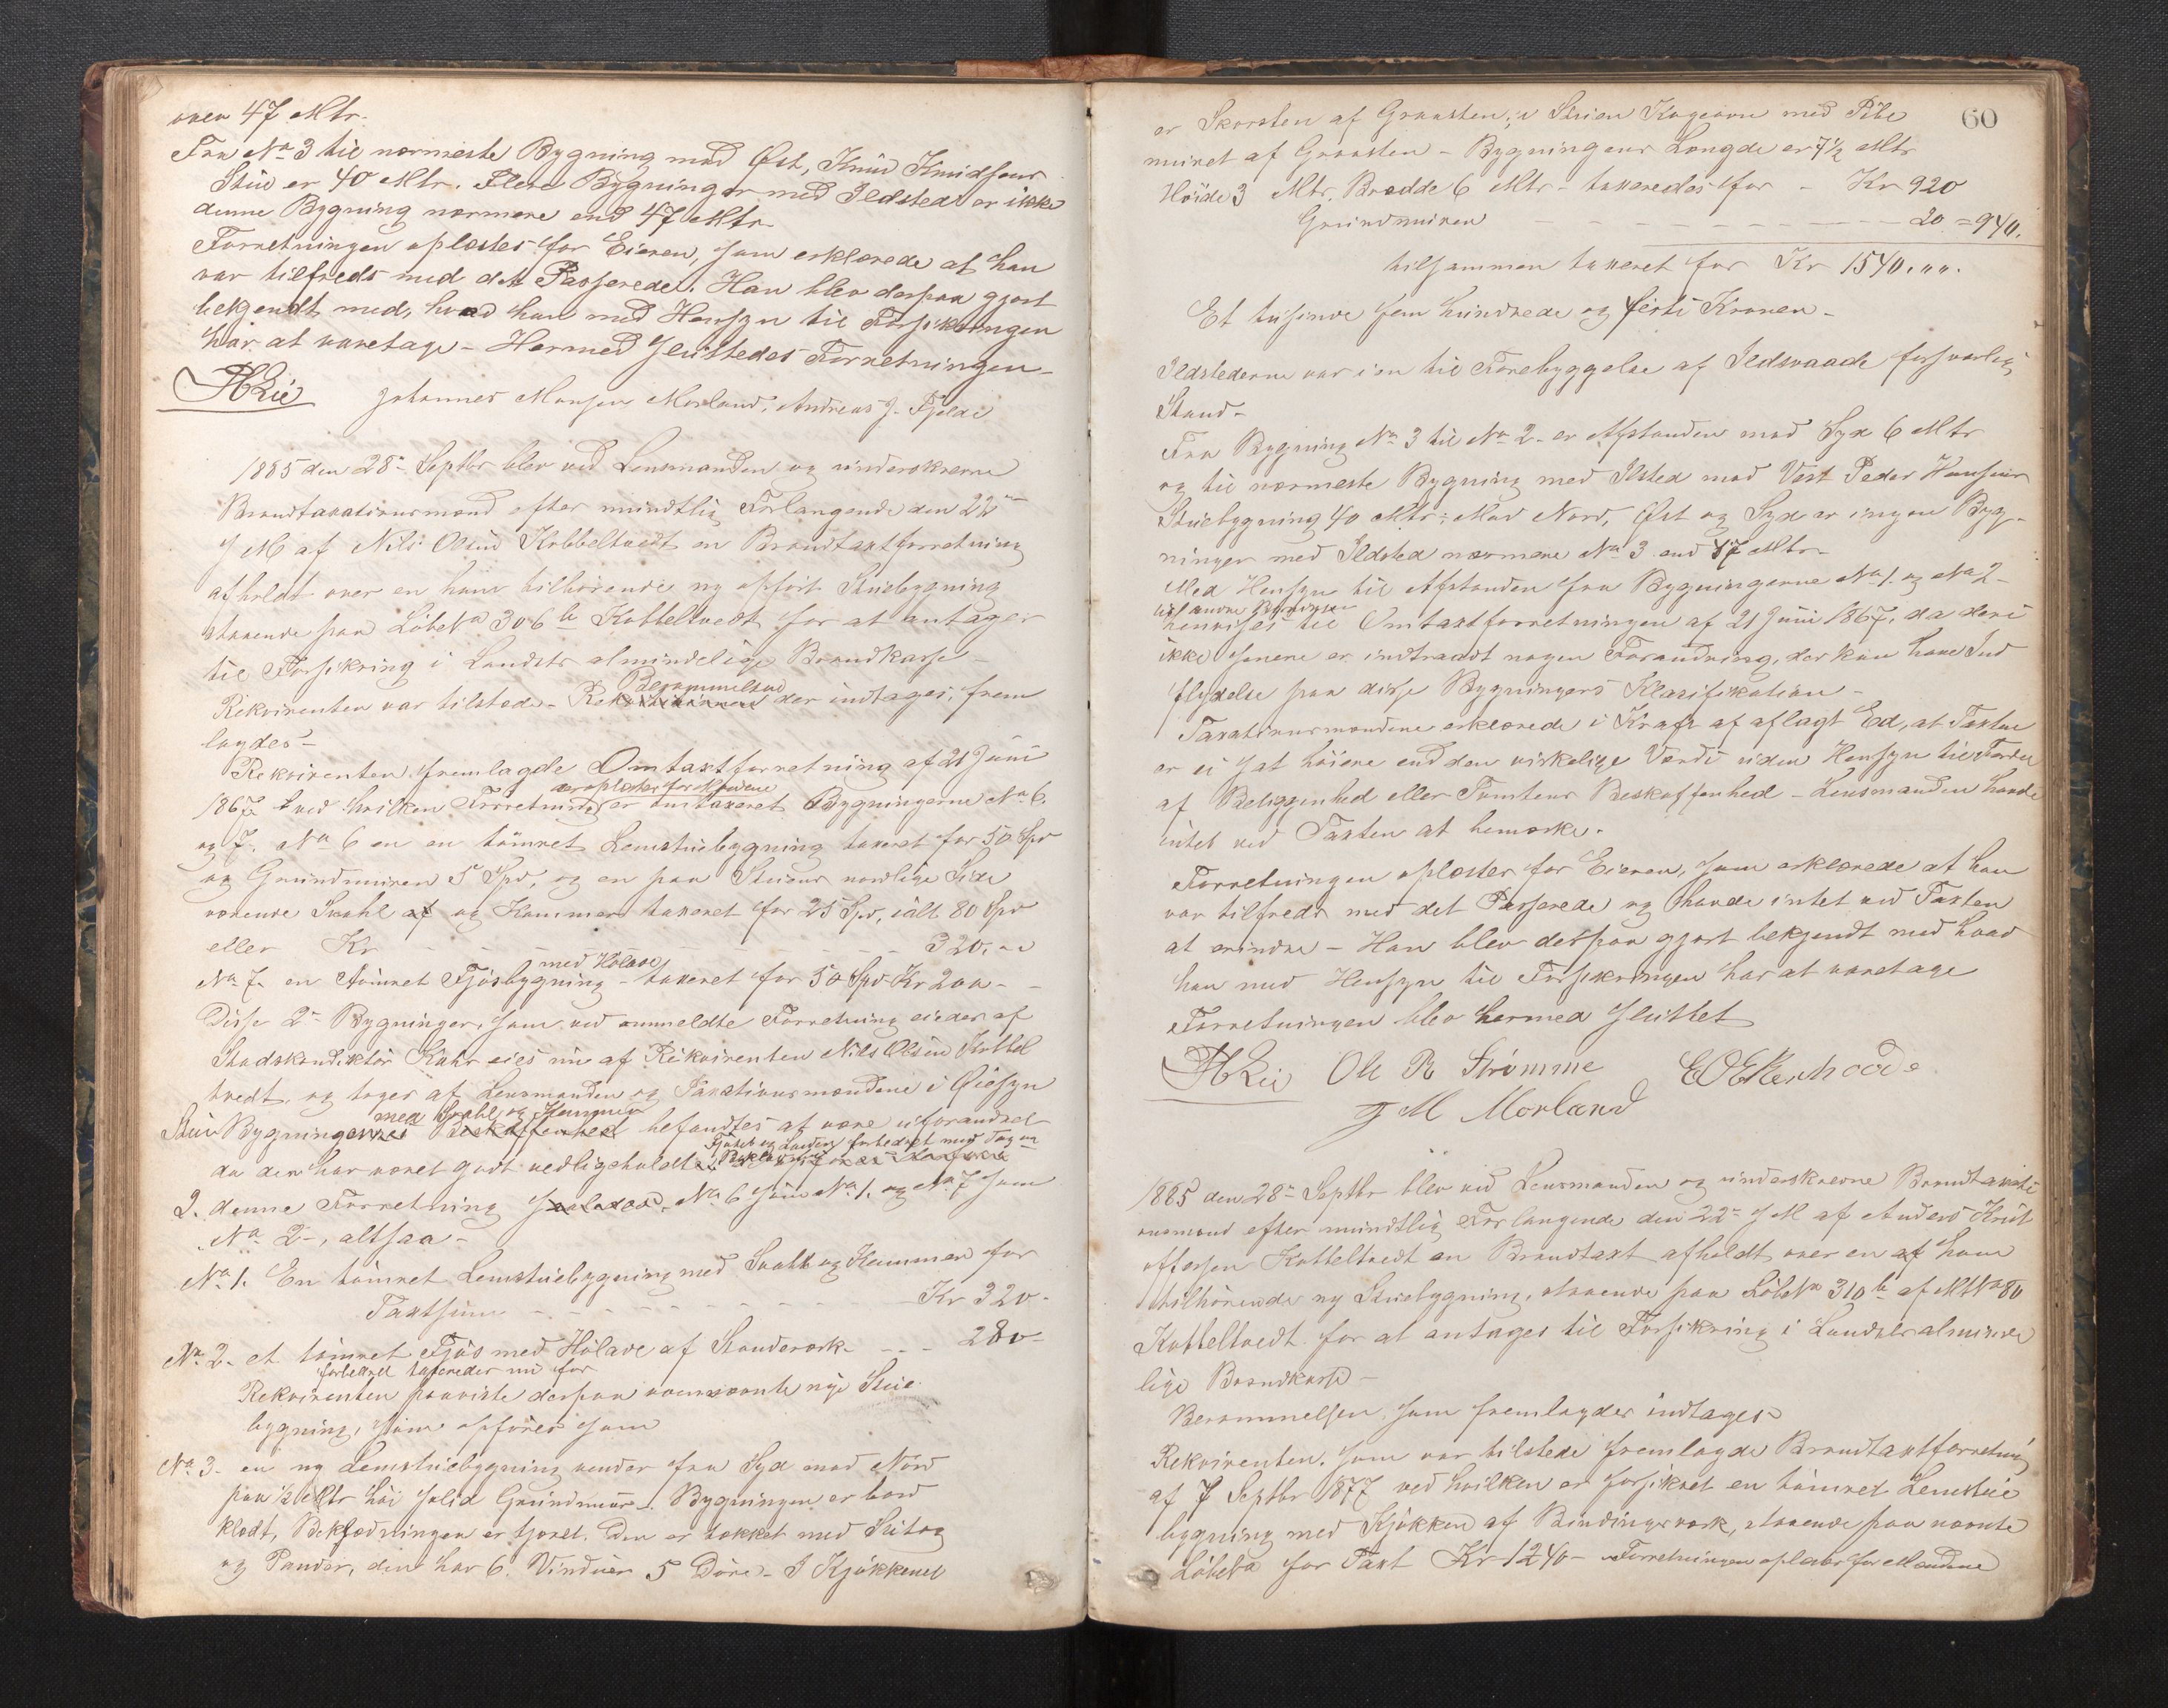 over 47 Mtr.
Fra No 3 til nærmeste Bygning mod Øst, Knud Knudsens
Stue er 40 Mtr. Flere Bygninger med Ildsted er ikke
denne Bygning nærmere end 47 Mtr.
Forretningen oplæstes for Eieren, som erklærede at han
var tilfreds med det Passerede. Han blev derpaa gjort
bekjendt med, hvad han med Hensyn til Forsikringen
har at varetage - Hermed sluttedes Forretningen -
Johannes Monsen Morland, Andreas J. Fjelde
1885 den 28de Septbr blev ved Lensmanden og underskrevne
Brandtaxationsmænd efter mundtlig Forlangende den 22de
s M af Nils Olsen Kobbeltvedt en Brandtaxtforretning
afholdt over en ham tilhørende ny opført Stuebygning
staaende paa Løbe No 306 b Kobbeltvedt for at antages
til Forsikring i Landets almindelige Brandkasse -
Berammelsen
Rekvirenten var tilstede - der indtages, frem
lagdes -
Rekvirenten fremlagde Omtaxtforretning af 21 Juni
der oplæstes for Mændene
1867 ved hvilken Forretning er omtaxeret Bygningerne No 6.
og 7. No 6 en en tømret Lemstuebygning taxeret for 50 Spd
og Grundmuren 5 Spd, og en paa Stuens nordlige Side
værende Svahl og Kammer taxeret for 25 Spd, ialt 80 Spd
eller Kr - - - - - 320. -
med Hølade
No 7. en tømret Fjøsbygning - taxeret for 50 Spd Kr 200 - -
Disse 2de Bygninger, som ved anmeldte Forretning eiedes af
Stadskonduktør Kahrs eies nu af Rekvirenten Nils Olsen Kobbel
tvedt, og toges af Lensmanden og Taxationsmændene i Øiesyn
med Svahl og Kammer
Stue Bygningens Beskaffenhed befandtes at være uforandret
Fjøset og Laden forbedret med Tag og
da den har været godt vedligeholdt
2. denne Forretning No 6 som No 1. og No 7 som
No 2 -, altsaa -
No 1. En tømret Lemstuebygning med Svahl og Kammer for
Taxtsum - - - - - Kr 320 -
No 2. et tømret Fjøs med Hølade af Stavverk - - - 280 -
forbedret taxeredes nu for
Rekvirenten paaviste derpaa ovennævnte nye Stue
bygning, som opføres som
No 3. en ny Lemstuebygning vender fra Syd mod Nord
paa 1/2 Mtr høi solid Grundmuur. Bygningen er bord
klædt, Beklædningen er tjæret. Den er tækket med Stitag
og Pander, den har 6 Vinduer 5 Døre - I Kjøkkenet
60
er Skorsten af Graasten, i Stuen Kogeovn med Pibe
muret af Graasten - Bygningens Længde er 7 1/2 Mtr
Høide 3 Mtr. Bredde 6 Mtr - taxeredes for - Kr 920
Grundmuren - - - - - 20 = 940.
tilsammen taxeret for Kr 1540. " ".
Et tusinde fem hundrede og firti Kroner -
Ildstederne var i en til Forebyggelse af Ildsvaade forsvarlig
Stand -
Fra Bygning No 3 til No 2 - er Afstanden mod Syd 6 Mtr
og til nærmeste Bygning med Ilsted mod Vest Peder Hansens
Stuebygning 40 Mtr. Mod Nord, Øst og Syd er ingen Byg-
ninger med Ildsted nærmere No 3 end 47 Mtr -
Med Hensyn til Afstanden fra Bygningerne No 1. og No 2 -
til andre Bygninger
henvises til Omtaxtforretningen af 21 Juni 1867, da deri
ikke senere er indtraadt nogen Forandring, der kan have Ind
flydelse paa disse Bygningers Klasifikation -
Taxationsmændene erklærede i Kraft af aflagt Ed, at Taxten
er ei sat høiere end den virkelige Værdi uden Hensyn til Fordel
af Beliggenhed eller Tomtens Beskaffenhed - Lensmanden havde
intet ved Taxten at bemærke.
Forretningen oplæstes for Eieren, som erklærede at han
var tilfreds med det Passerede og havde intet ved Taxten
at erindre - Han blev derpaa gjort bekjendt med hvad
han med Hensyn til Forsikringen har at varetage
Forretningen blev hermed sluttet
Ole R Strömme
J M Morland
1885 den 28de Septbr blev ved Lensmanden og underskrevne Brandtaxati
onsmænd efter mundtlig Forlangende den 22de s M af Anders Krist
offersen Kobbeltvedt en Brandtaxt afholdt over en af ham
tilhørende ny Stuebygning, staaende paa Løbe No 310 b af Mt No 80
Kobbeltvedt for at antages til Forsikring i Landets alminde
lige Brandkasse -
Berammelsen som fremlagdes indtages
Rekvirenten, som var tilstede fremlagde Brandtaxtforretning
af 7 Septbr 1877 ved hvilken er forsikret en tømret Lemstue
bygning med Kjøkken af Bindingsverk, staaende paa nævnte
Løbe No for Taxt Kr 1240 - Forretningen oplæstes for Mændene